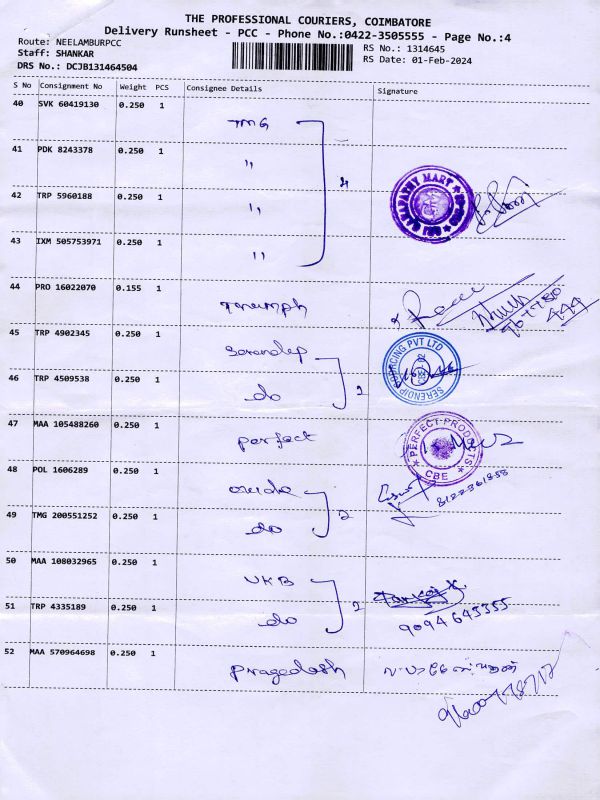 THE PROFESSIONAL COURIERS, COIMBATORE
Delivery Runsheet - PCC - Phone No.:0422-3505555 - Page No.:4
Route: NEELAMBURPCC
RS No.: 1314645
Staff: SHANKAR
RS Date: 01-Feb-2024
DRS No.: DCJB131464504
S No Consignment No Weight PCS Consignee Details Signature
40 SVK 60419130 0.250 1 TMG
41 PDK 8243378 0.250 1 "
4
SRI GANAPATHI MART
42 TRP 5960188 0.250 1 "
43 IXM 505753971 0.250 1 "
44 PRO 16022070 0.155 1 Triumph
45 TRP 4902345 0.250 1 Serendep
SERENDIP SOURCING PVT LTD
46 TRP 4509538 0.250 1 do 2
47 MAA 105488260 0.250 1 perfect
PERFECT PRODUCTS CBE
48 POL 1606289 0.250 1
8122361858
49 TMG 200551252 0.250 1 do 2
50 MAA 108032965 0.250 1 UKB
51 TRP 4335189 0.250 1 do 2
9094645355
52 MAA 570964698 0.250 1 pragedash